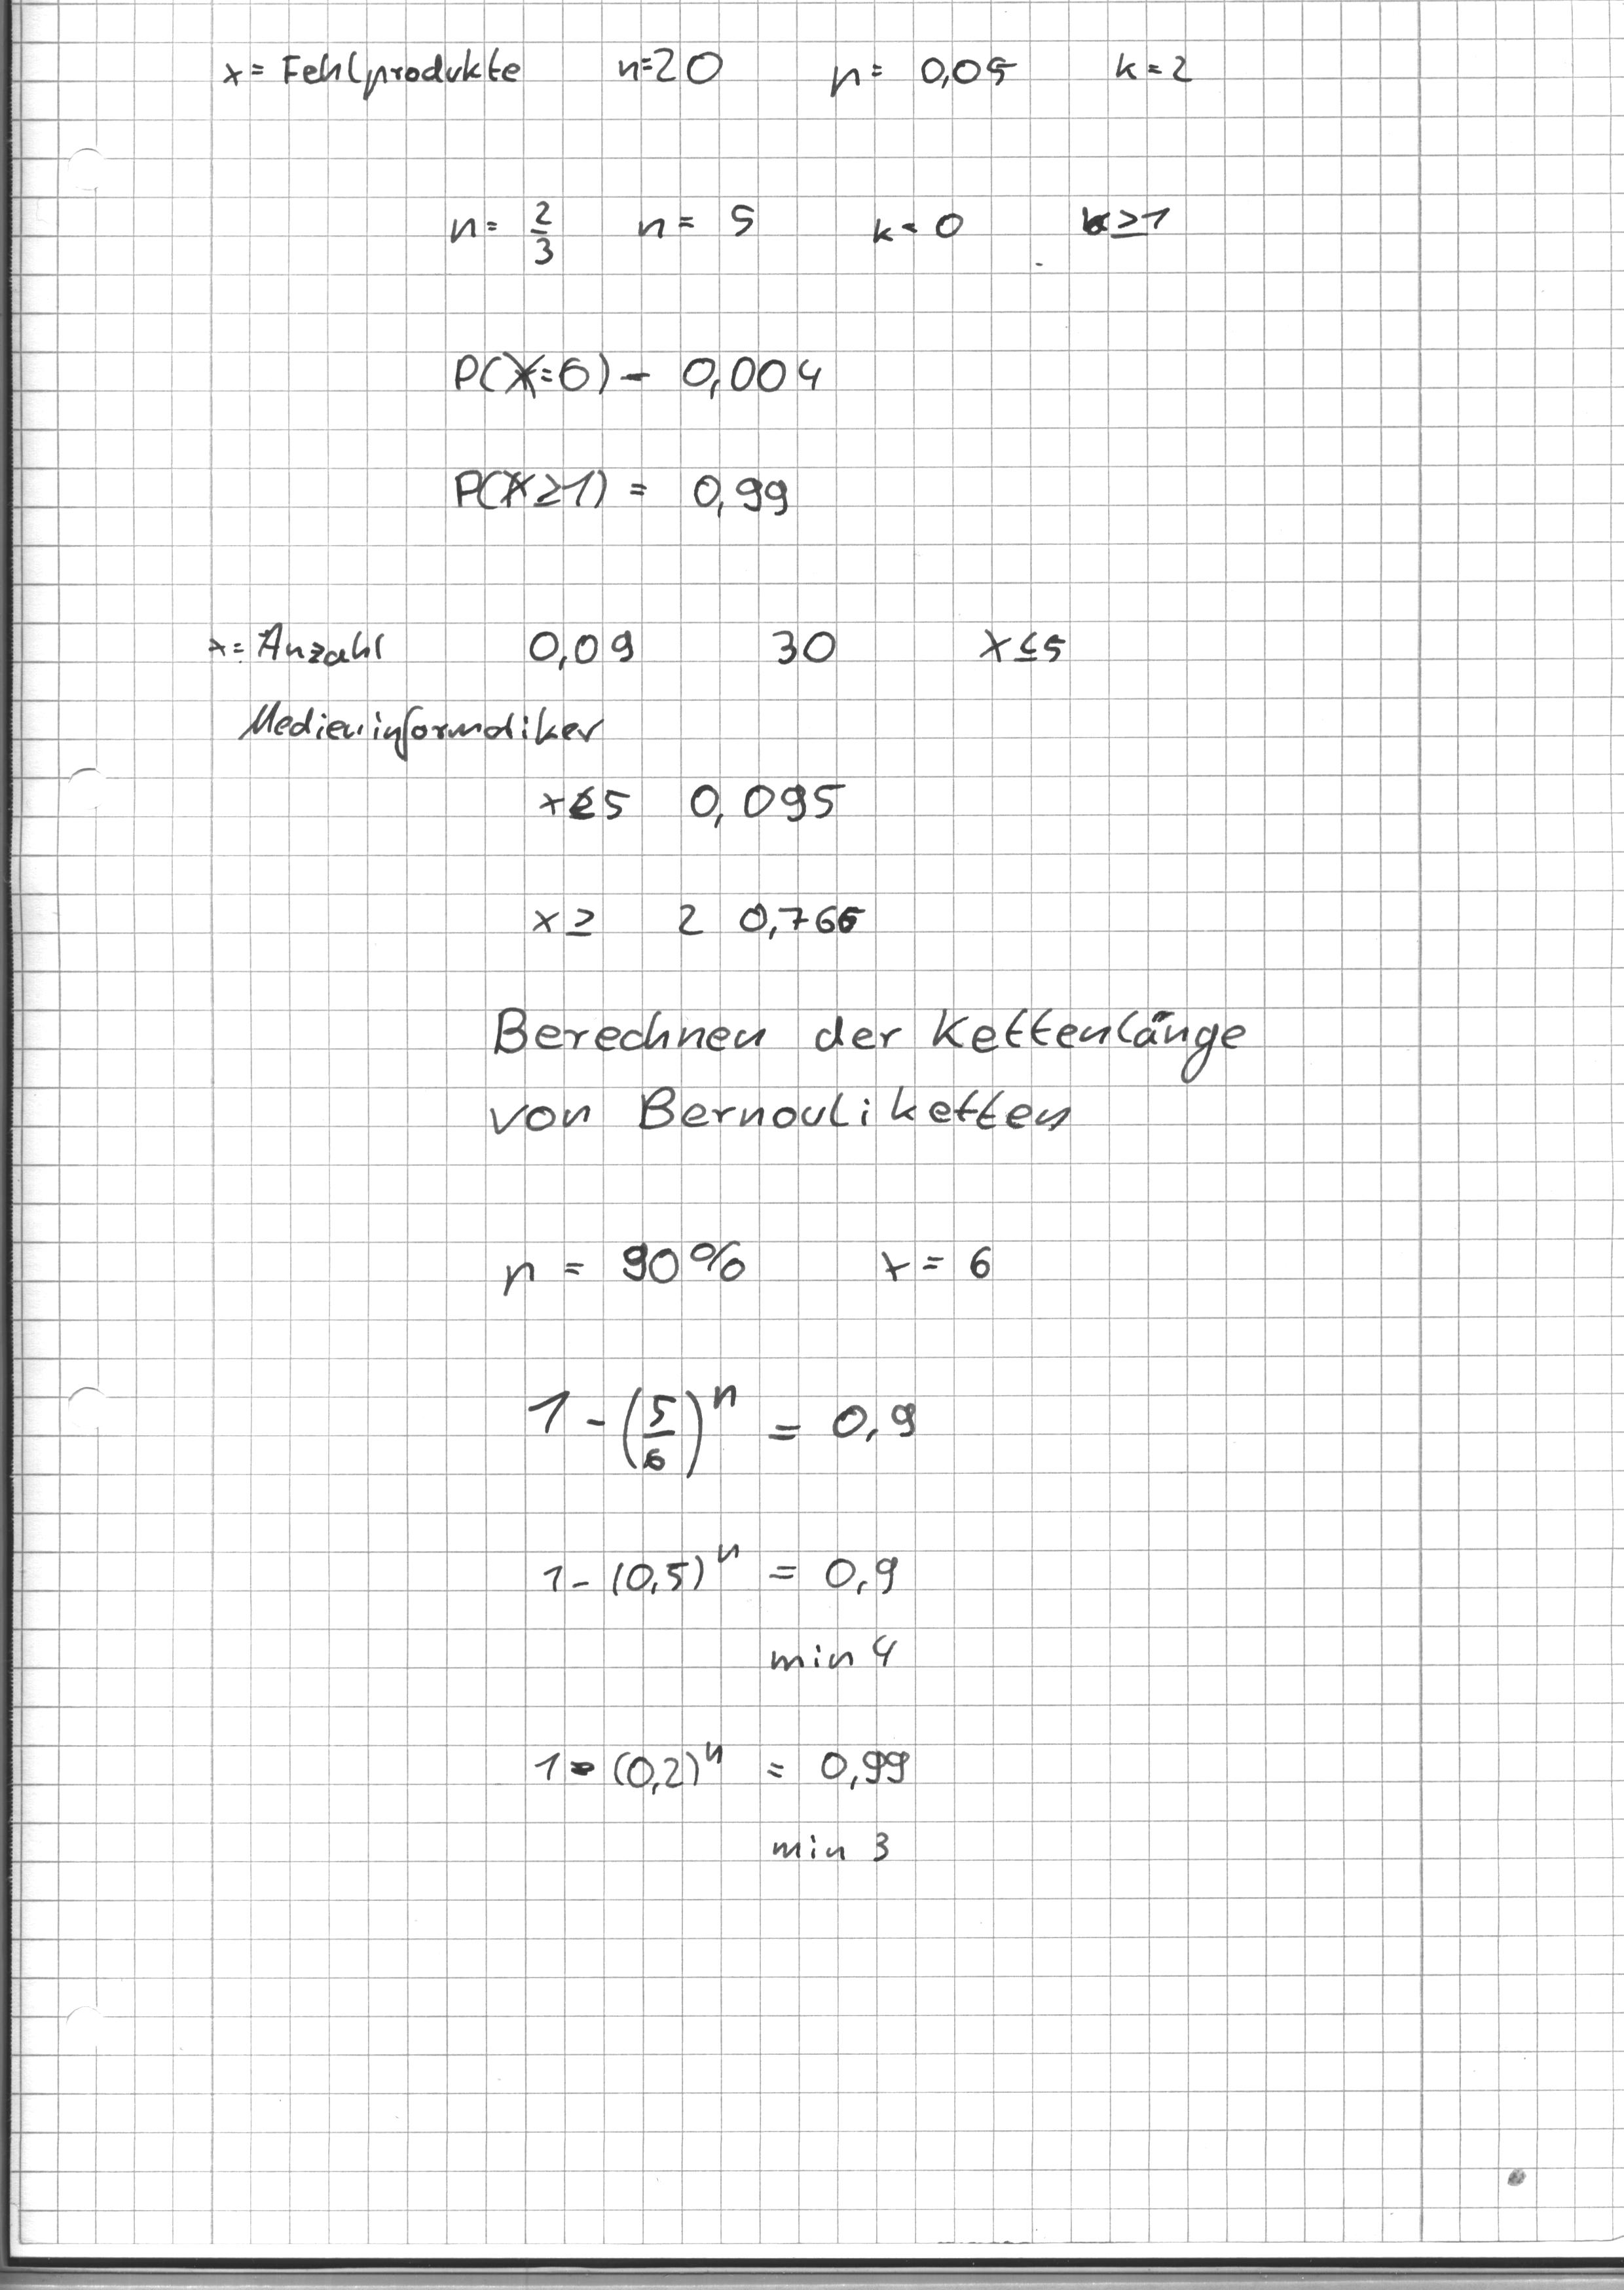 x = Fehlprodukte n=20 p= 0,05 k=2
p= 2/3 n= 5 k=0 k≥1
P(X=0)= 0,004
P(X≥1) = 0,99
x= Anzahl 0,09 30 X≤5
Medieninformatiker
x≤5 0,095
x≥ 2 0,766
Berechnen der Kettenlänge
von Bernouliketten
p = 90% x = 6
1 - (5/6)^n = 0,9
1 - (0,5)^n = 0,9
min 4
1 - (0,2)^n = 0,99
min 3